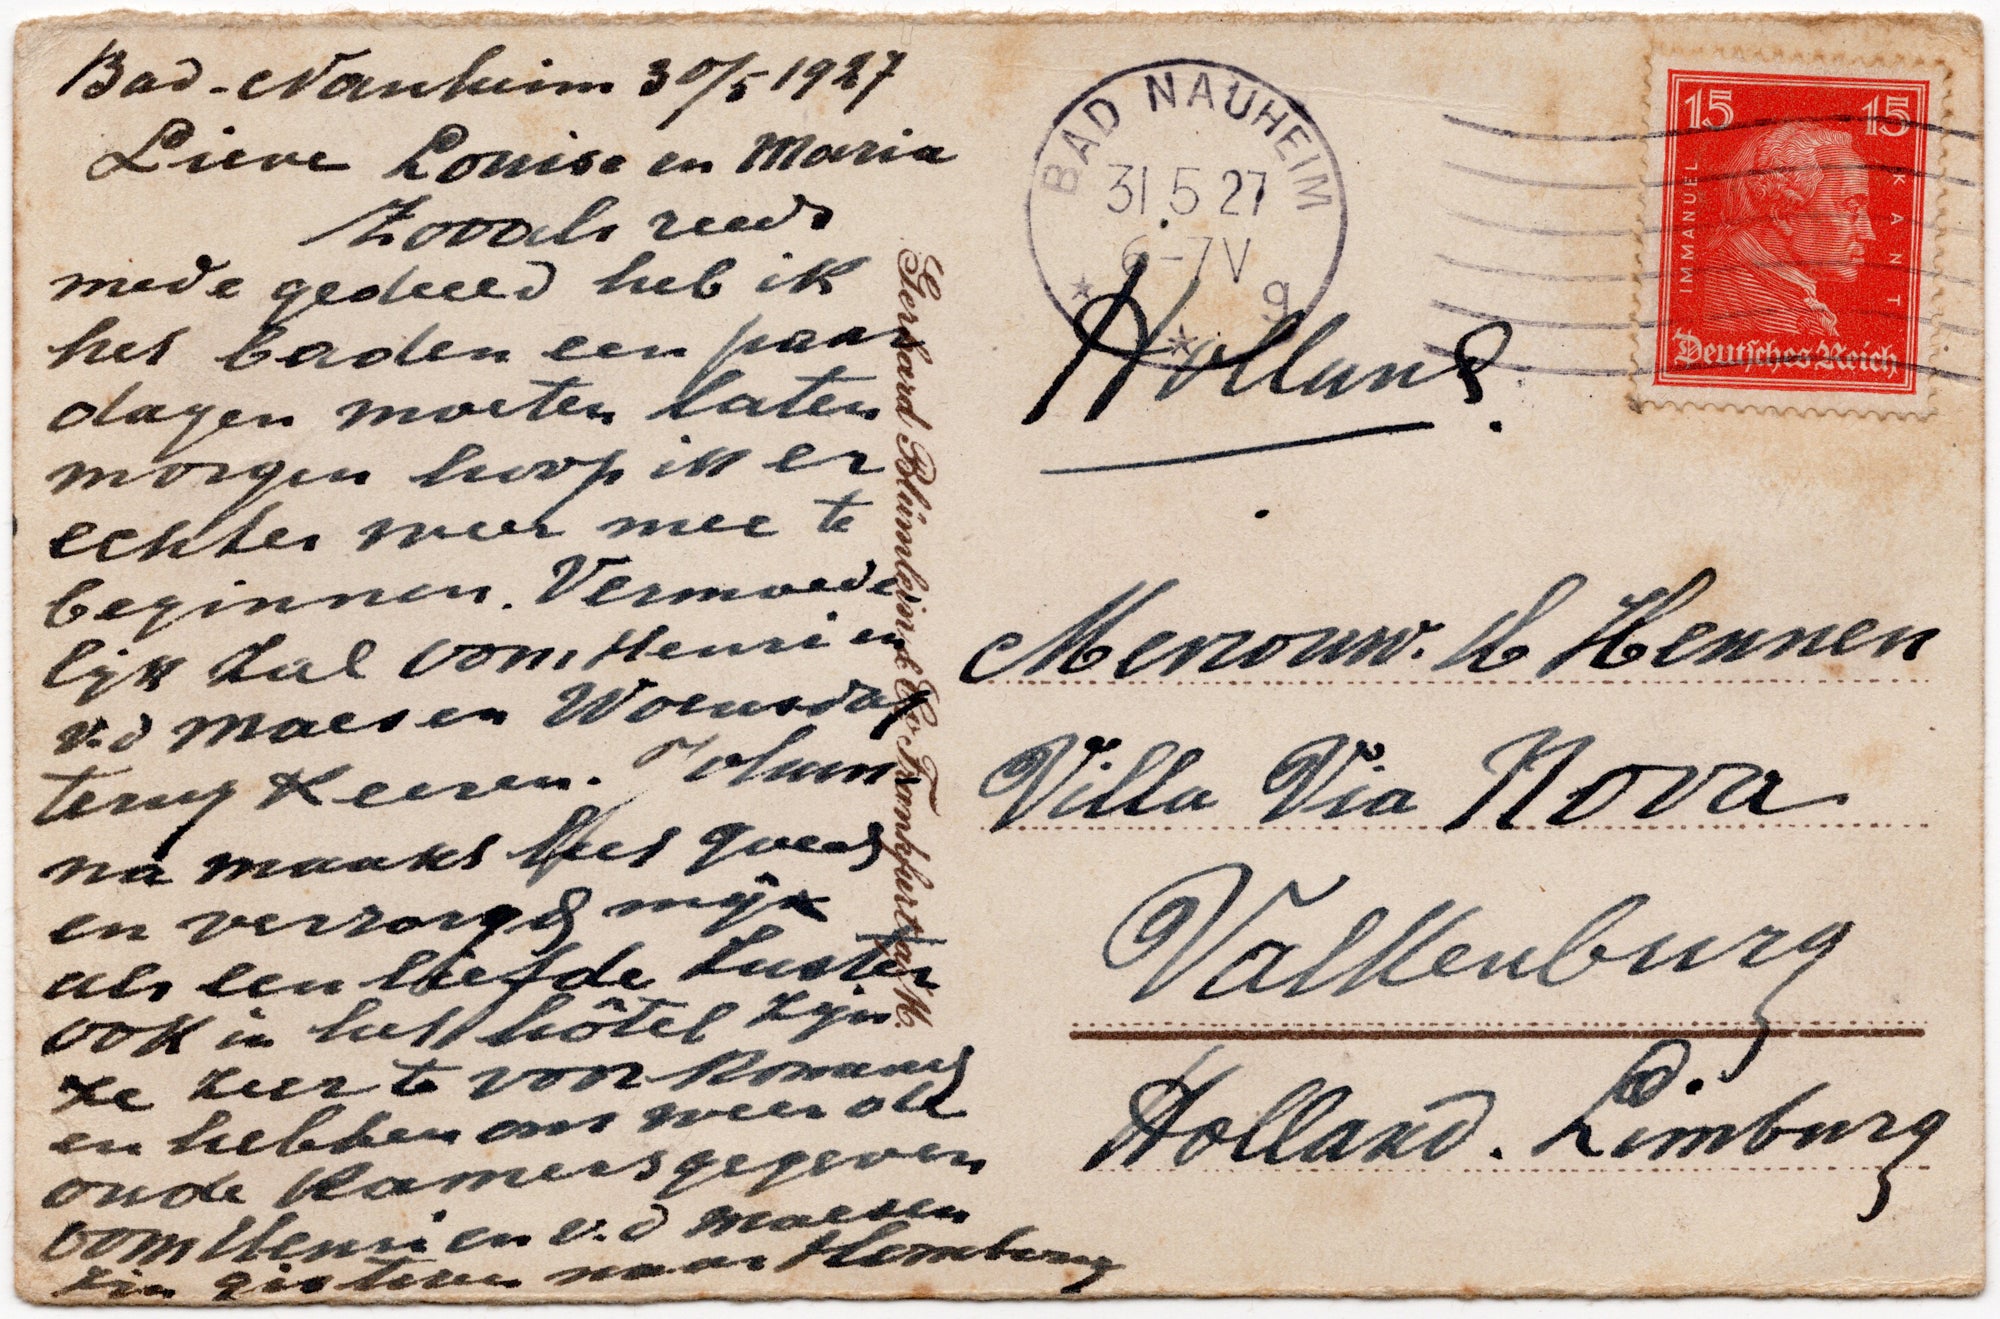 Bad-Nauheim 30/5 1927
Lieve Louise en Maria
Zooals reeds
mede gedeeld heb ik
het baden een paar
dagen moeten laten
morgen hoop ik er
echter weer mee te
beginnen. Vermoede
lijk zal oom Henri en
v.d Maesen Woensdag
terug keeren. Johan
na maakt het goed
en verzorgd mij
als een liefde zuster
ook in het hôtel zijn
ze zeer te voor komend
en hebben ons weer de
oude kamers gegeven
oom Henri en v.d Maesen
zin gisteren naar Homburg
Gerhard Blümlein & Co Frankfurt a/M.
BAD NAUHEIM
31.5 27
6-7V
g
15 15
IMMANUEL KANT
Deutsches Reich
Holland.
Mevrouw. L Hennen
Villa Via Nova
Valkenburg
Holland. Limburg